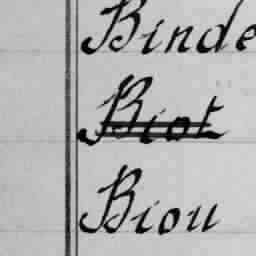 Binde
Biot
Biou